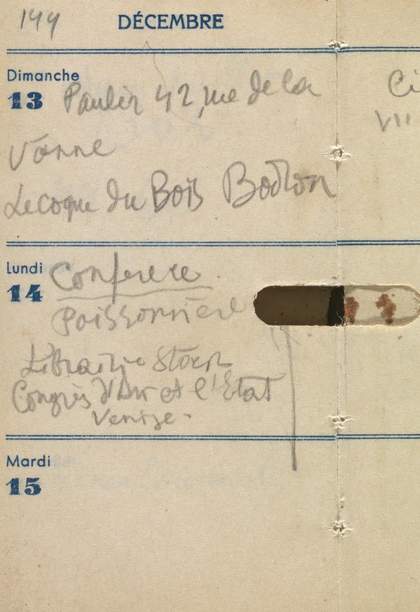 199
DÉCEMBRE
Dimanche
13 Paulin 42, rue de la
Vanne
Lecoque du Bois Bodron
Ci
VII
Lundi
14 Conferere
Poissonnière
Librairie Stock
Congrès d'Art et l'Etat
Venise.
Mardi
15